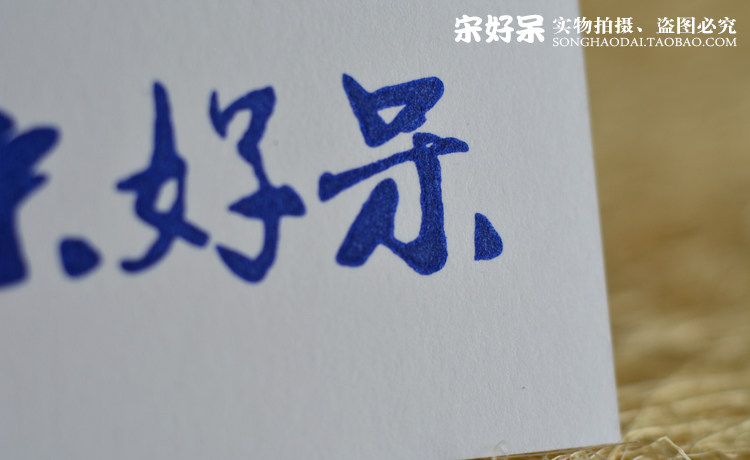 宋好呆 实物拍摄、盗图必究
SONGHAODAI.TAOBAO.COM
宋好呆